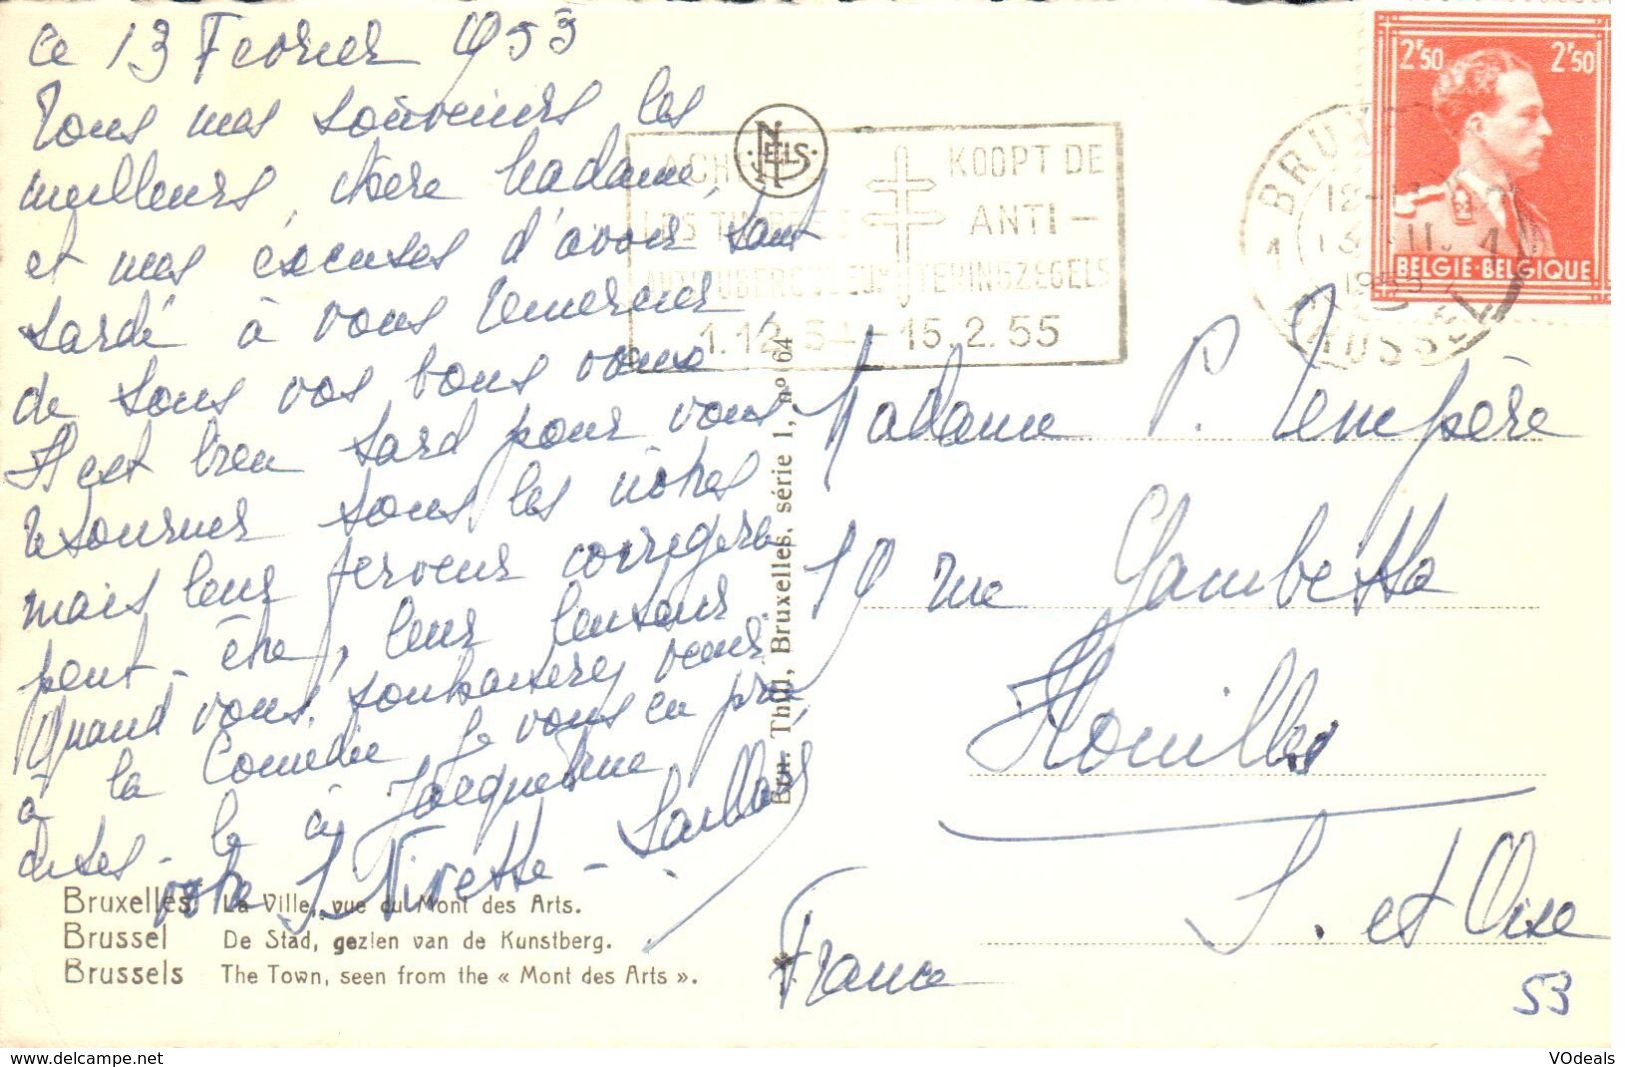 ce 13 Février 1955
Tous mes souvenirs les
meilleurs, chère Madame,
et mes excuses d'avoir tant
tardé à vous remercier,
de tous vos bons vœux
Il est bien tard pour vous
retourner tous les nôtres
mais leur ferveur corrigera
peut-être, leur lenteur
Quand vous souhaiterez venir
à la Comédie je vous en prie
dites-le à Jacqueline
votre J. Nivette-Saillard
Bruxelles La Ville, vue du Mont des Arts.
Brussel De Stad, gezien van de Kunstberg.
Brussels The Town, seen from the « Mont des Arts ».
NELS
LES TIMBRES
KOOPT DE
ANTI-
TERINGZEGELS
1.12.54-15.2.55
Ern. Thill, Bruxelles, série 1, nº 64
2F50 2F50
BELGIE-BELGIQUE
1955
Madame P. Tempère
19 rue Gambetta
Houilles
S. et Oise
France
53
https://www.delcampe.net
VOdeals